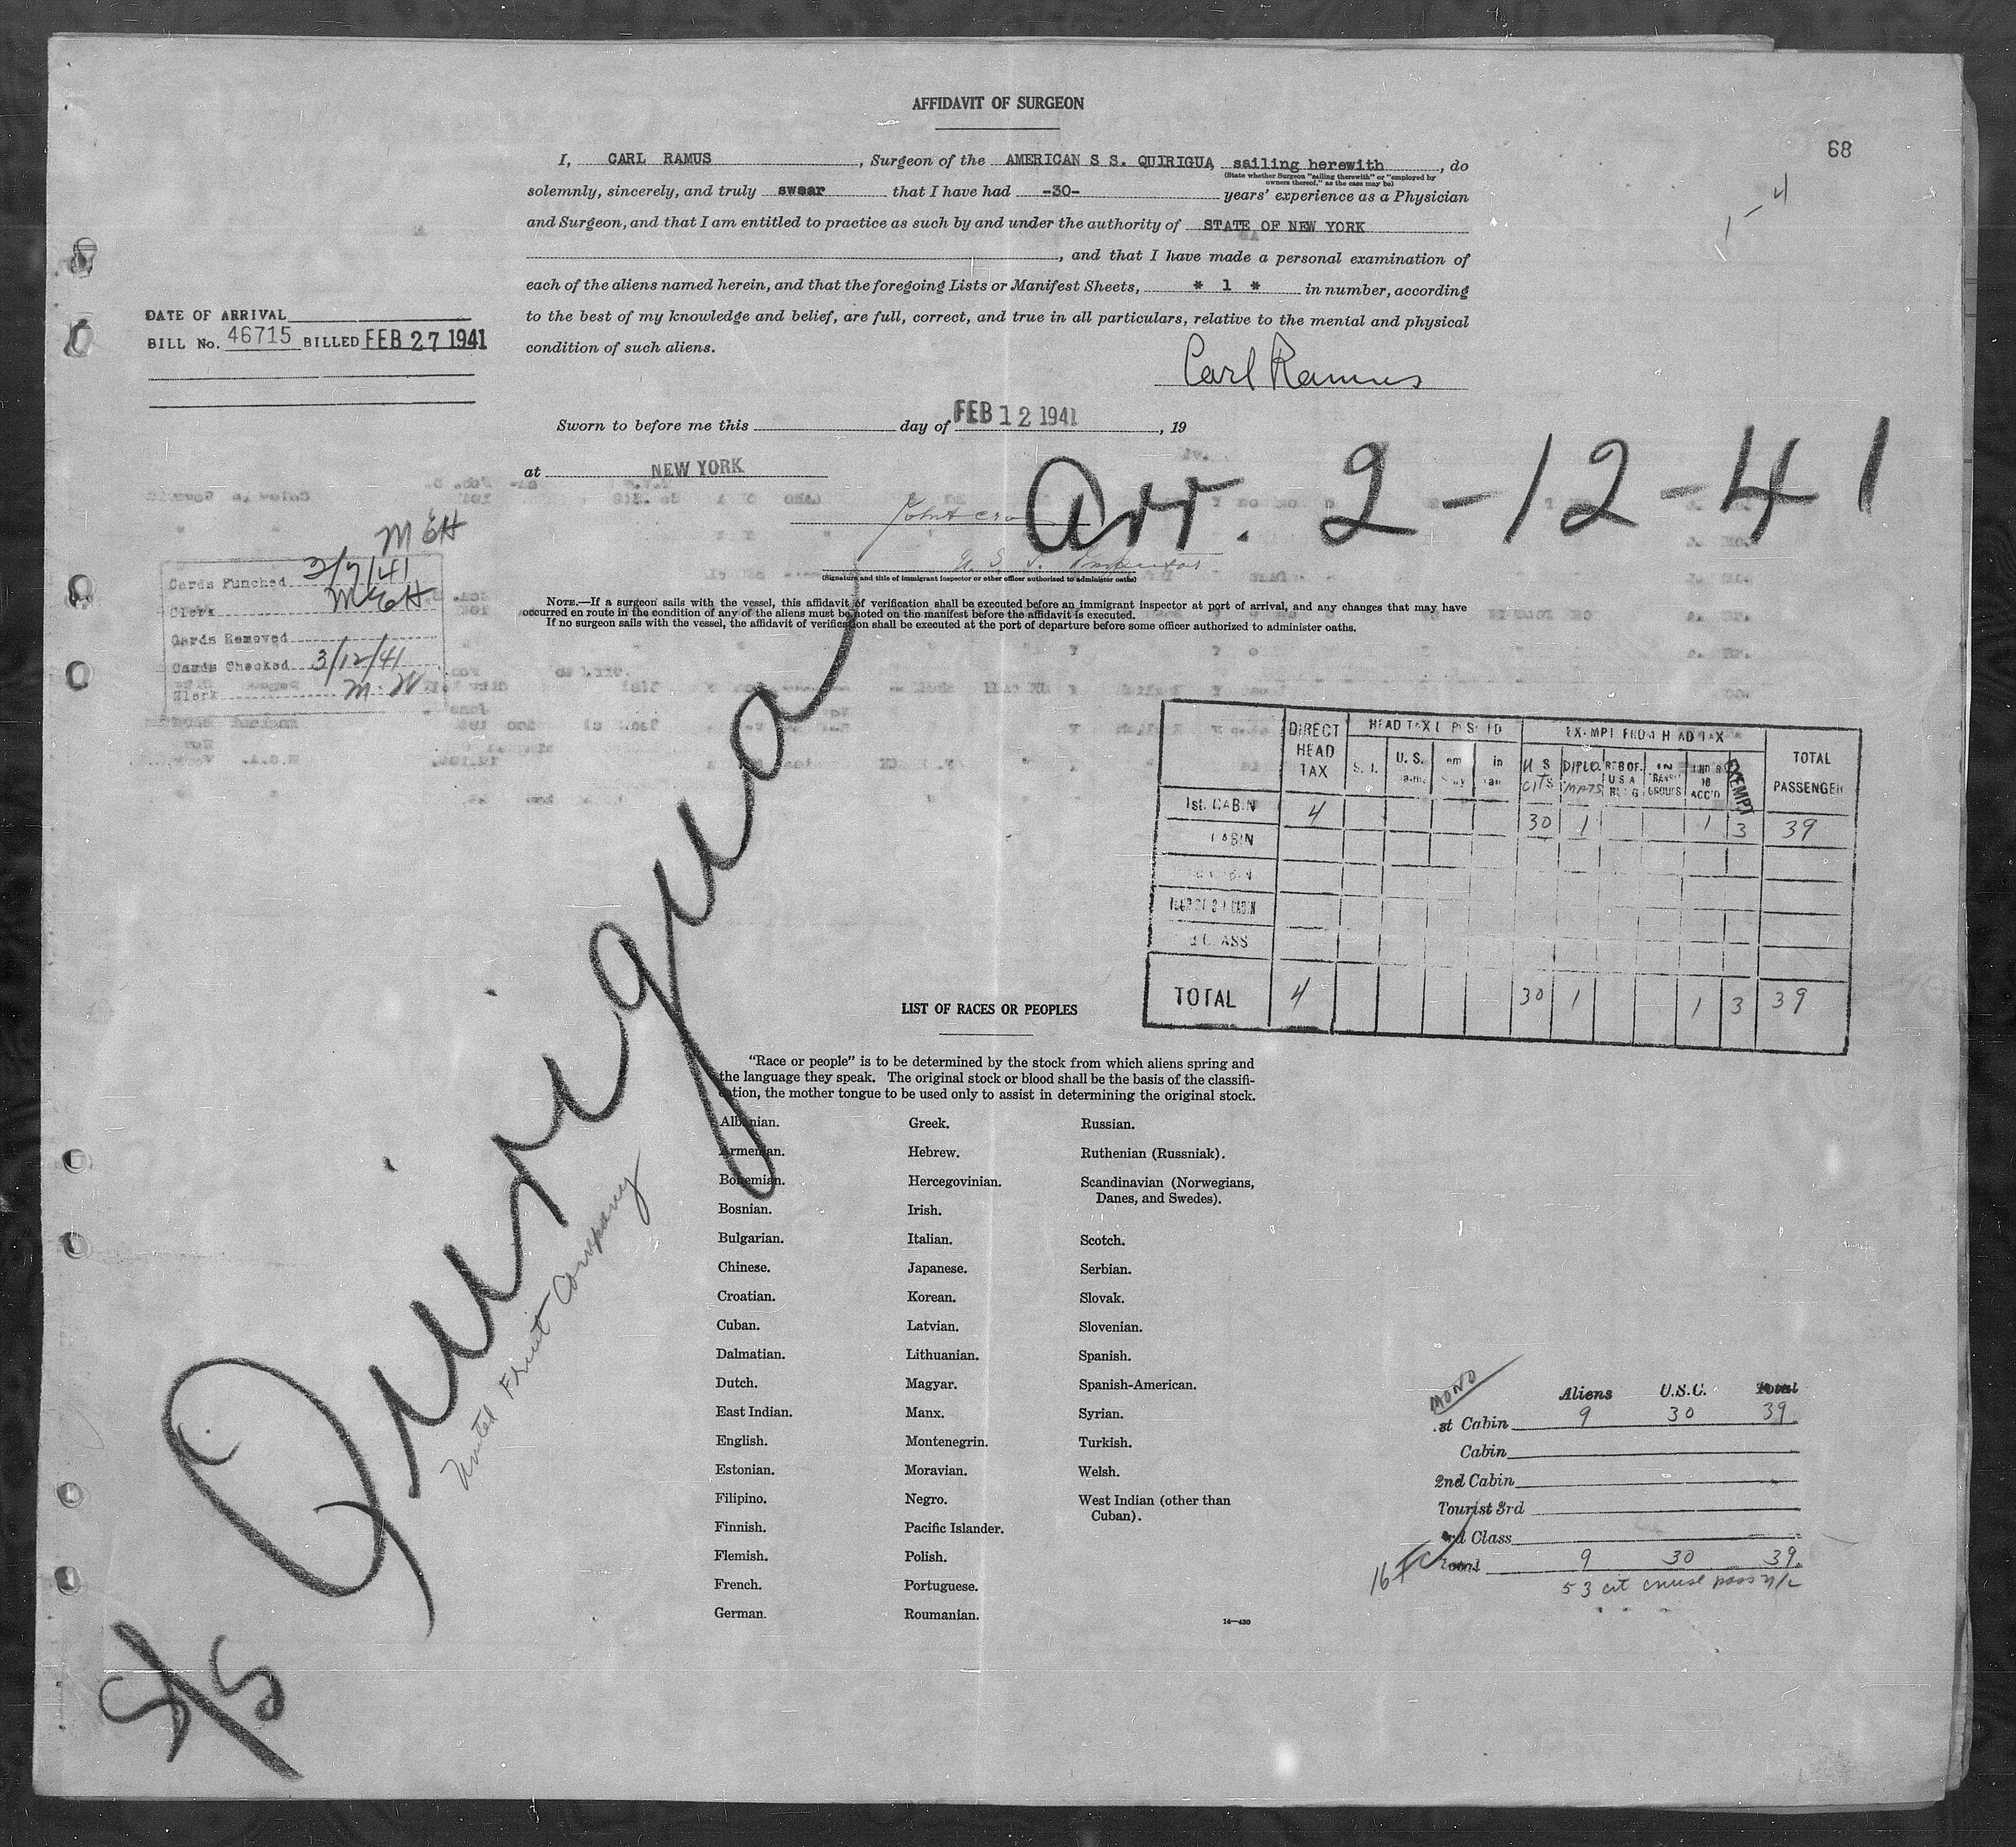 AFFIDAVIT OF SURGEON
68
1-4
I, CARL RAMUS, Surgeon of the AMERICAN S S. QUIRIGUA, sailing herewith, do
(State whether Surgeon "sailing therewith" or "employed by
owners thereof," as the case may be)
solemnly, sincerely, and truly swear that I have had -30- years' experience as a Physician
and Surgeon, and that I am entitled to practice as such by and under the authority of STATE OF NEW YORK
, and that I have made a personal examination of
each of the aliens named herein, and that the foregoing Lists or Manifest Sheets, * 1 * in number, according
to the best of my knowledge and belief, are full, correct, and true in all particulars, relative to the mental and physical
condition of such aliens.
Carl Ramus
DATE OF ARRIVAL
BILL No. 46715 BILLED FEB 27 1941
Sworn to before me this day of FEB 12 1941, 19
at NEW YORK
Arr. 2-12-41
(Signature and title of immigrant inspector or other officer authorized to administer oaths)
NOTE.—If a surgeon sails with the vessel, this affidavit of verification shall be executed before an immigrant inspector at port of arrival, and any changes that may have
occurred en route in the condition of any of the aliens must be noted on the manifest before the affidavit is executed.
If no surgeon sails with the vessel, the affidavit of verification shall be executed at the port of departure before some officer authorized to administer oaths.
MEH
Cards Punched 3/7/41
Clerk MEH
Cards Removed
Cards Checked 3/12/41
Clerk M. W
DIRECT HEAD TAX
EXEMPT FROM HEAD TAX
TOTAL PASSENGER
S. I. U. S. U S CITS DIPLOMATS IN TRANSIT GROUPS EXEMPT
1st. CABIN 4 30 1 1 3 39
CABIN
TOTAL 4 30 1 1 3 39
S/S Quirigua
United Fruit Company
LIST OF RACES OR PEOPLES
"Race or people" is to be determined by the stock from which aliens spring and
the language they speak. The original stock or blood shall be the basis of the classifi-
cation, the mother tongue to be used only to assist in determining the original stock.
Albanian.
Armenian.
Bohemian.
Bosnian.
Bulgarian.
Chinese.
Croatian.
Cuban.
Dalmatian.
Dutch.
East Indian.
English.
Estonian.
Filipino.
Finnish.
Flemish.
French.
German.
Greek.
Hebrew.
Hercegovinian.
Irish.
Italian.
Japanese.
Korean.
Latvian.
Lithuanian.
Magyar.
Manx.
Montenegrin.
Moravian.
Negro.
Pacific Islander.
Polish.
Portuguese.
Roumanian.
Russian.
Ruthenian (Russniak).
Scandinavian (Norwegians,
Danes, and Swedes).
Scotch.
Serbian.
Slovak.
Slovenian.
Spanish.
Spanish-American.
Syrian.
Turkish.
Welsh.
West Indian (other than
Cuban).
14—430
MONO
Aliens U.S.C. Total
st Cabin 9 30 39
Cabin
2nd Cabin
Tourist 3rd
rd Class
Total 9 30 39
53 cit cruise pass